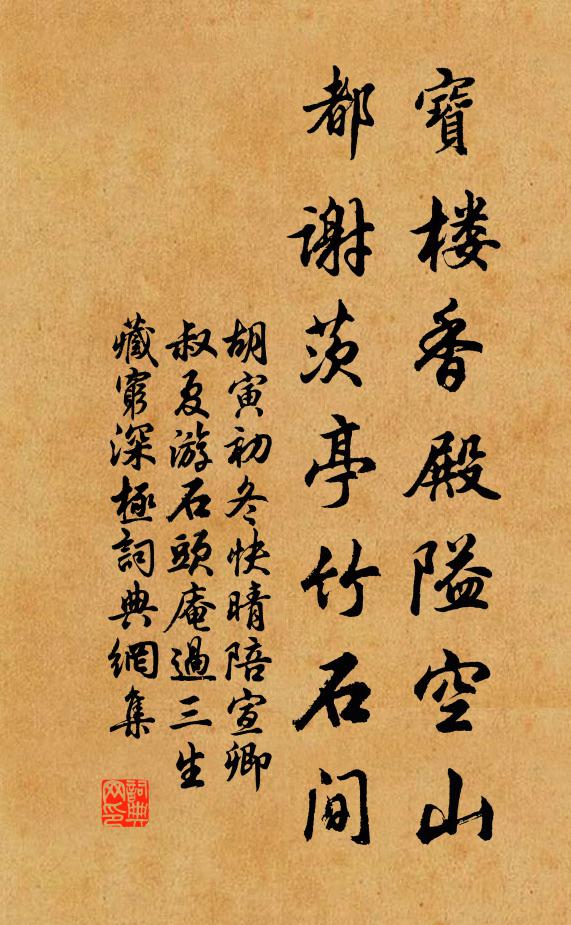 寶楼香殿隘空山
都谢茨亭竹石间
胡寅初冬快晴陪宣卿
叔夏游石頭庵過三生
藏窮深極詞典網集
詞典网印